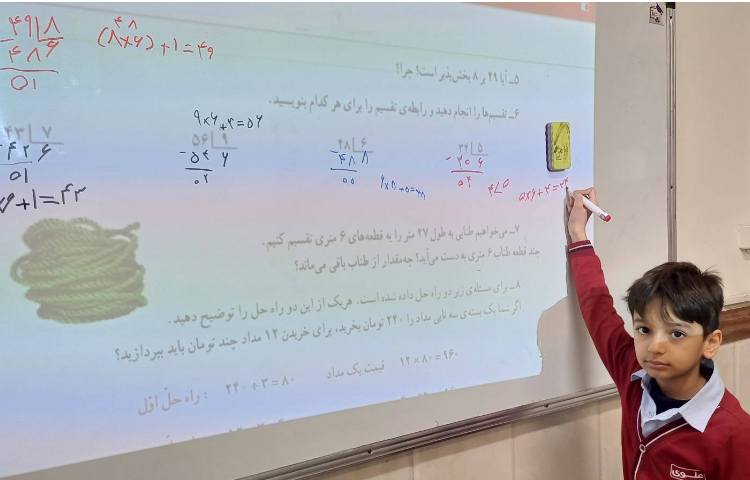 ۴۹ ۸
۴۸ ۶
۰۱
۴۸
(۸×۶) +۱ = ۴۹
۵ــ آیا ۲۹ بر ۸ بخش‌پذیر است؟ چرا؟
۶ــ تقسیم‌ها را انجام دهید و رابطه‌ی تقسیم را برای هر کدام بنویسید.
۴۳ ۷
-۴۲ ۶
۰۱
+۱=۴۳
۹×۶+۲=۵۶
۵۶ ۹
-۵۴ ۶
۰۲
۴۸ ۶
-۴۸ ۸
۰۰
۶×۸+۰=۴۸
۳۴ ۵
-۳۰ ۶
۰۴
۴<۵
۵×۶+۴=۳۴
۷ــ می‌خواهیم طنابی به طول ۲۷ متر را به قطعه‌های ۶ متری تقسیم کنیم.
چند قطعه طناب ۶ متری به دست می‌آید؟ چه‌مقدار از طناب باقی می‌ماند؟
۸ــ برای مسئله‌ی زیر دو راه حل داده شده است. هریک از این دو راه حل را توضیح دهید.
اگر شما یک بسته‌ی سه تایی مداد را ۲۴۰ تومان بخرید، برای خریدن ۱۲ مداد چند تومان باید بپردازید؟
راه حلّ اول : ۲۴۰ ÷ ۳ = ۸۰ قیمت یک مداد ۱۲ × ۸۰ = ۹۶۰
علوی